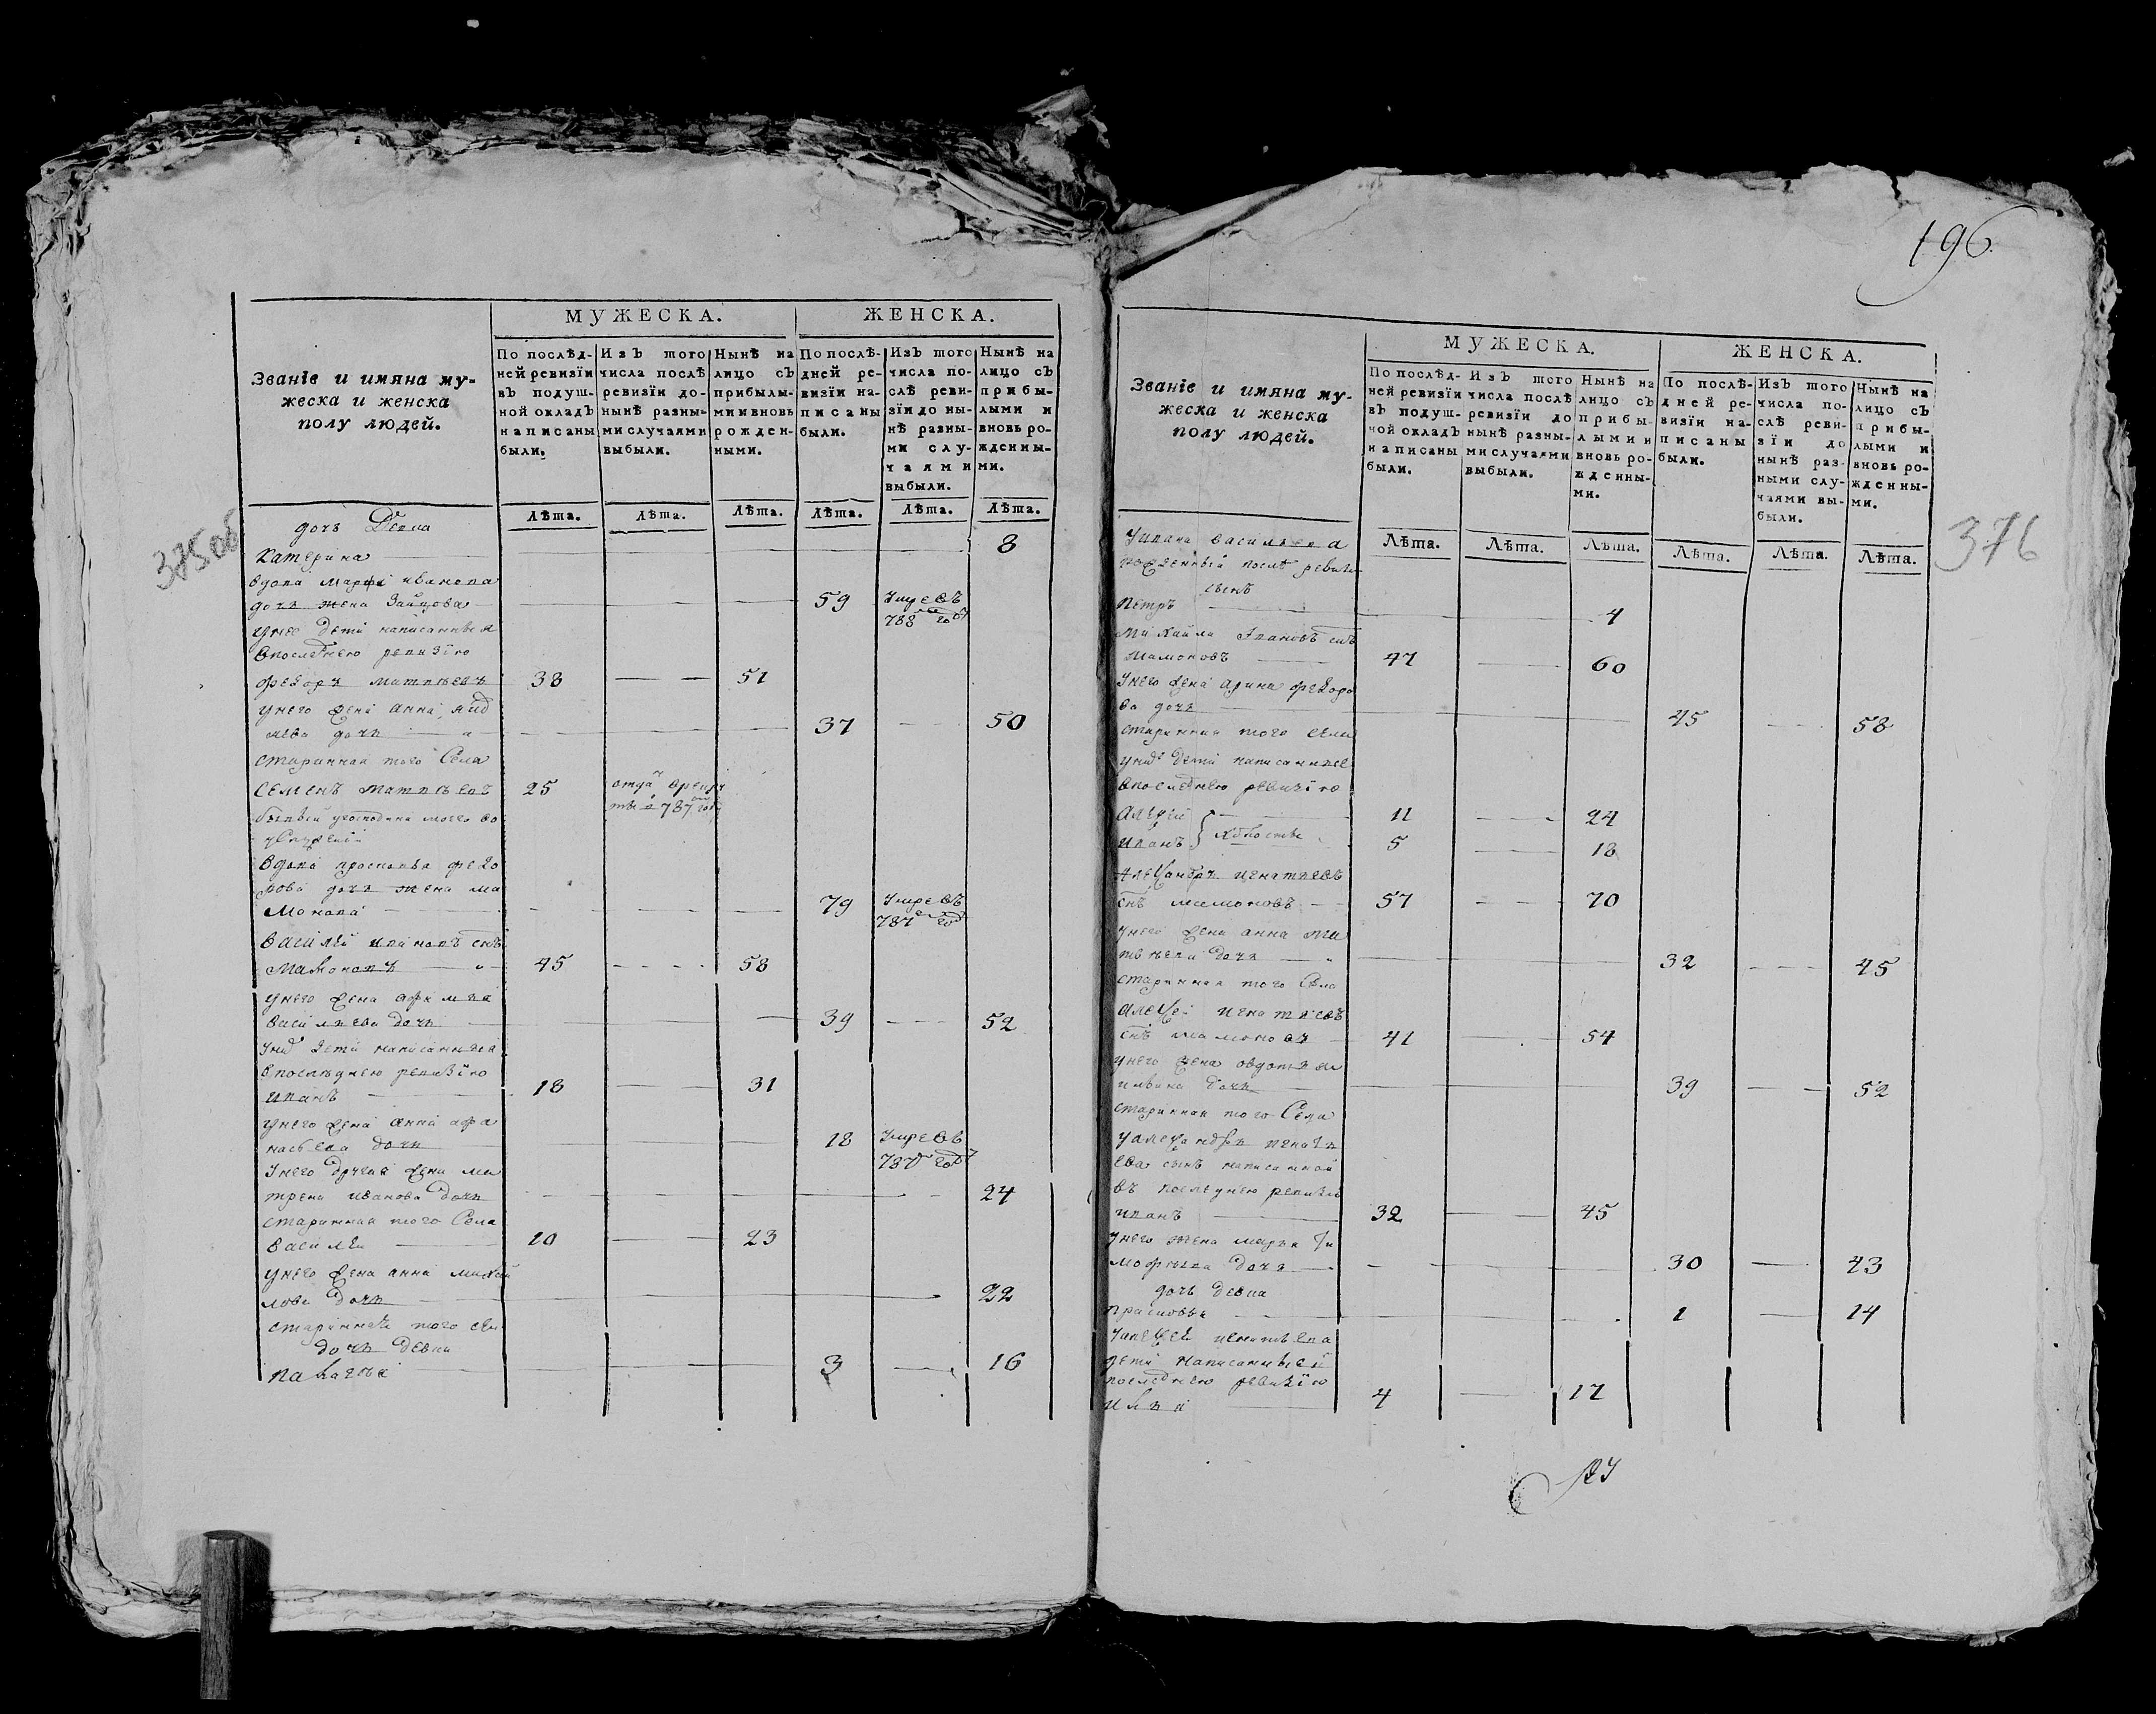 196.
375об
МУЖЕСКА.
ЖЕНСКА.
Званіе и имяна му-
жеска и женска
полу людей.
По послѣд-
ней ревизїи
въ подуш-
ной окладъ
написаны
были.
Изъ того
числа послѣ
ревизїи до-
нынѣ разны-
ми случаями
выбыли.
Нынѣ на
лицо съ
прибылы-
ми и вновь
рожден-
ными.
По послѣ-
дней ре-
визїи на-
писаны
были.
Изъ того
числа по-
слѣ реви-
зїи до ны-
нѣ разны-
ми слу-
чаями
выбыли.
Нынѣ на
лицо съ
прибы-
лыми и
вновь ро-
жденны-
ми.
Лѣта. Лѣта. Лѣта. Лѣта. Лѣта. Лѣта.
дочь Девка
Катерина 8
вдова марфа иванова
дочь жена Зайцова 59 Умре въ
788 году
унее дети написанныя
впоследнею ревизїю
федоръ матвѣевъ 38 51
унего жена анна
дочь 37 50
старинная того Села
Семенъ матвѣевъ 25 отда врекру
ты в 787 году
вдова просковья федо
рова дочь жена ма
монова 79 Умре въ
787 году
василей ивановъ снъ
мамоновъ 45 58
унего жена афимья
васильева дочь 39 52
унихъ дети написанныя
впоследнею ревизїю
иванъ 18 31
унего жена анна афа
насьева дочь 18 Умре въ
787 году
Унего другая жена ма
трена иванова дочь 24
старинная того Села
василеи 10 23
унего жена анна михай
лова дочь 22
старинная того сел
дочь девка
палагея 3 16
376
МУЖЕСКА.
ЖЕНСКА.
Званіе и имяна му-
жеска и женска
полу людей.
По послѣд-
ней ревизїи
въ подуш-
ной окладъ
написаны
были.
Изъ того
числа послѣ
ревизїи до
нынѣ разны-
ми случаями
выбыли.
Нынѣ на
лицо съ
прибы-
лыми и
вновь ро-
жденны-
ми.
По послѣ-
дней ре-
визїи на-
писаны
были.
Изъ того
числа по-
слѣ реви-
зїи до
нынѣ раз-
ными слу-
чаями вы-
были.
Нынѣ на
лицо съ
прибы-
лыми и
вновь ро-
жденны-
ми.
Лѣта. Лѣта. Лѣта. Лѣта. Лѣта. Лѣта.
Уивана васильева
рожденный послѣ ревизи
сынъ
Петръ 4
Михайла Ивановъ снъ
мамоновъ 47 60
Унего жена арина федоро
ва дочь 45 58
старинная того села
унихъ дети написанные
впоследнею ревизїю
11 24
иванъ холосты 5 18
Александръ игнатьевъ
снъ мамоновъ 57 70
унего жена анна ма
твѣева дочь 32 45
старинная того Села
алексей игнатьевъ
снъ мамоновъ 41 54
унего жена овдотья
дочь 39 52
старинная того Села
Уалександра игнать
ева сынъ написанной
въ последнею ревизїю
иванъ 32 45
Унего жена марья ти
мофеева дочь 30 43
дочь девка
прасковья 1 14
Уалексея игнатьева
дети написанныей
последнею ревизїю
илья 4 17